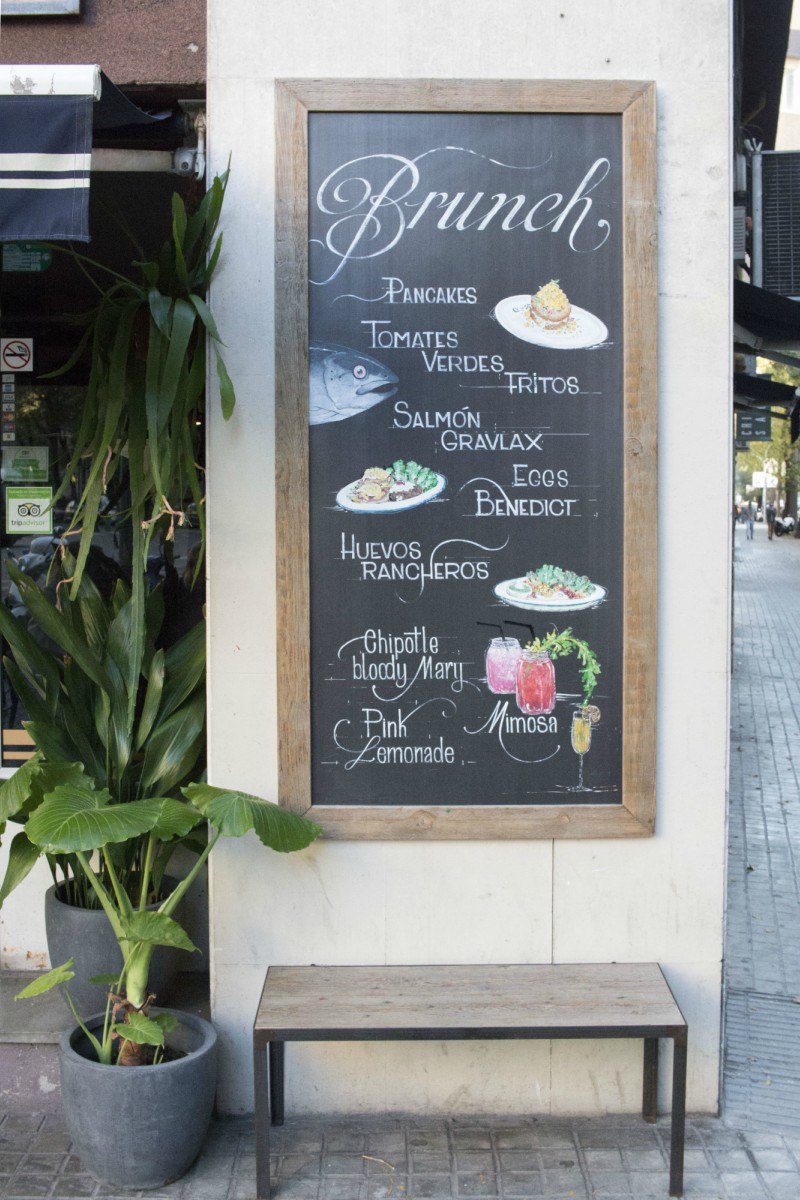 Brunch
Pancakes
Tomates
Verdes
Fritos
Salmón
Gravlax
Eggs
Benedict
Huevos
Rancheros
Chipotle
bloody Mary
Mimosa
Pink
Lemonade
tripadvisor